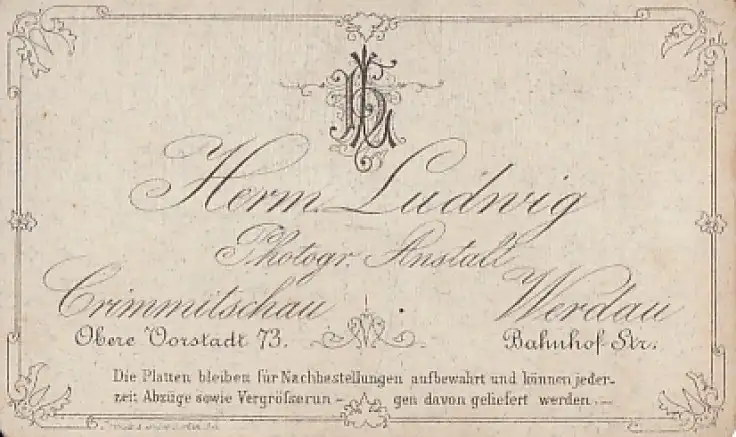 HL
Herm. Ludwig
Photogr. Anstalt
Crimmitschau Werdau
Obere Vorstadt 73. Bahnhof-Str.
Die Platten bleiben für Nachbestellungen aufbewahrt und können jeder-
zeit Abzüge sowie Vergrösserun- gen davon geliefert werden.